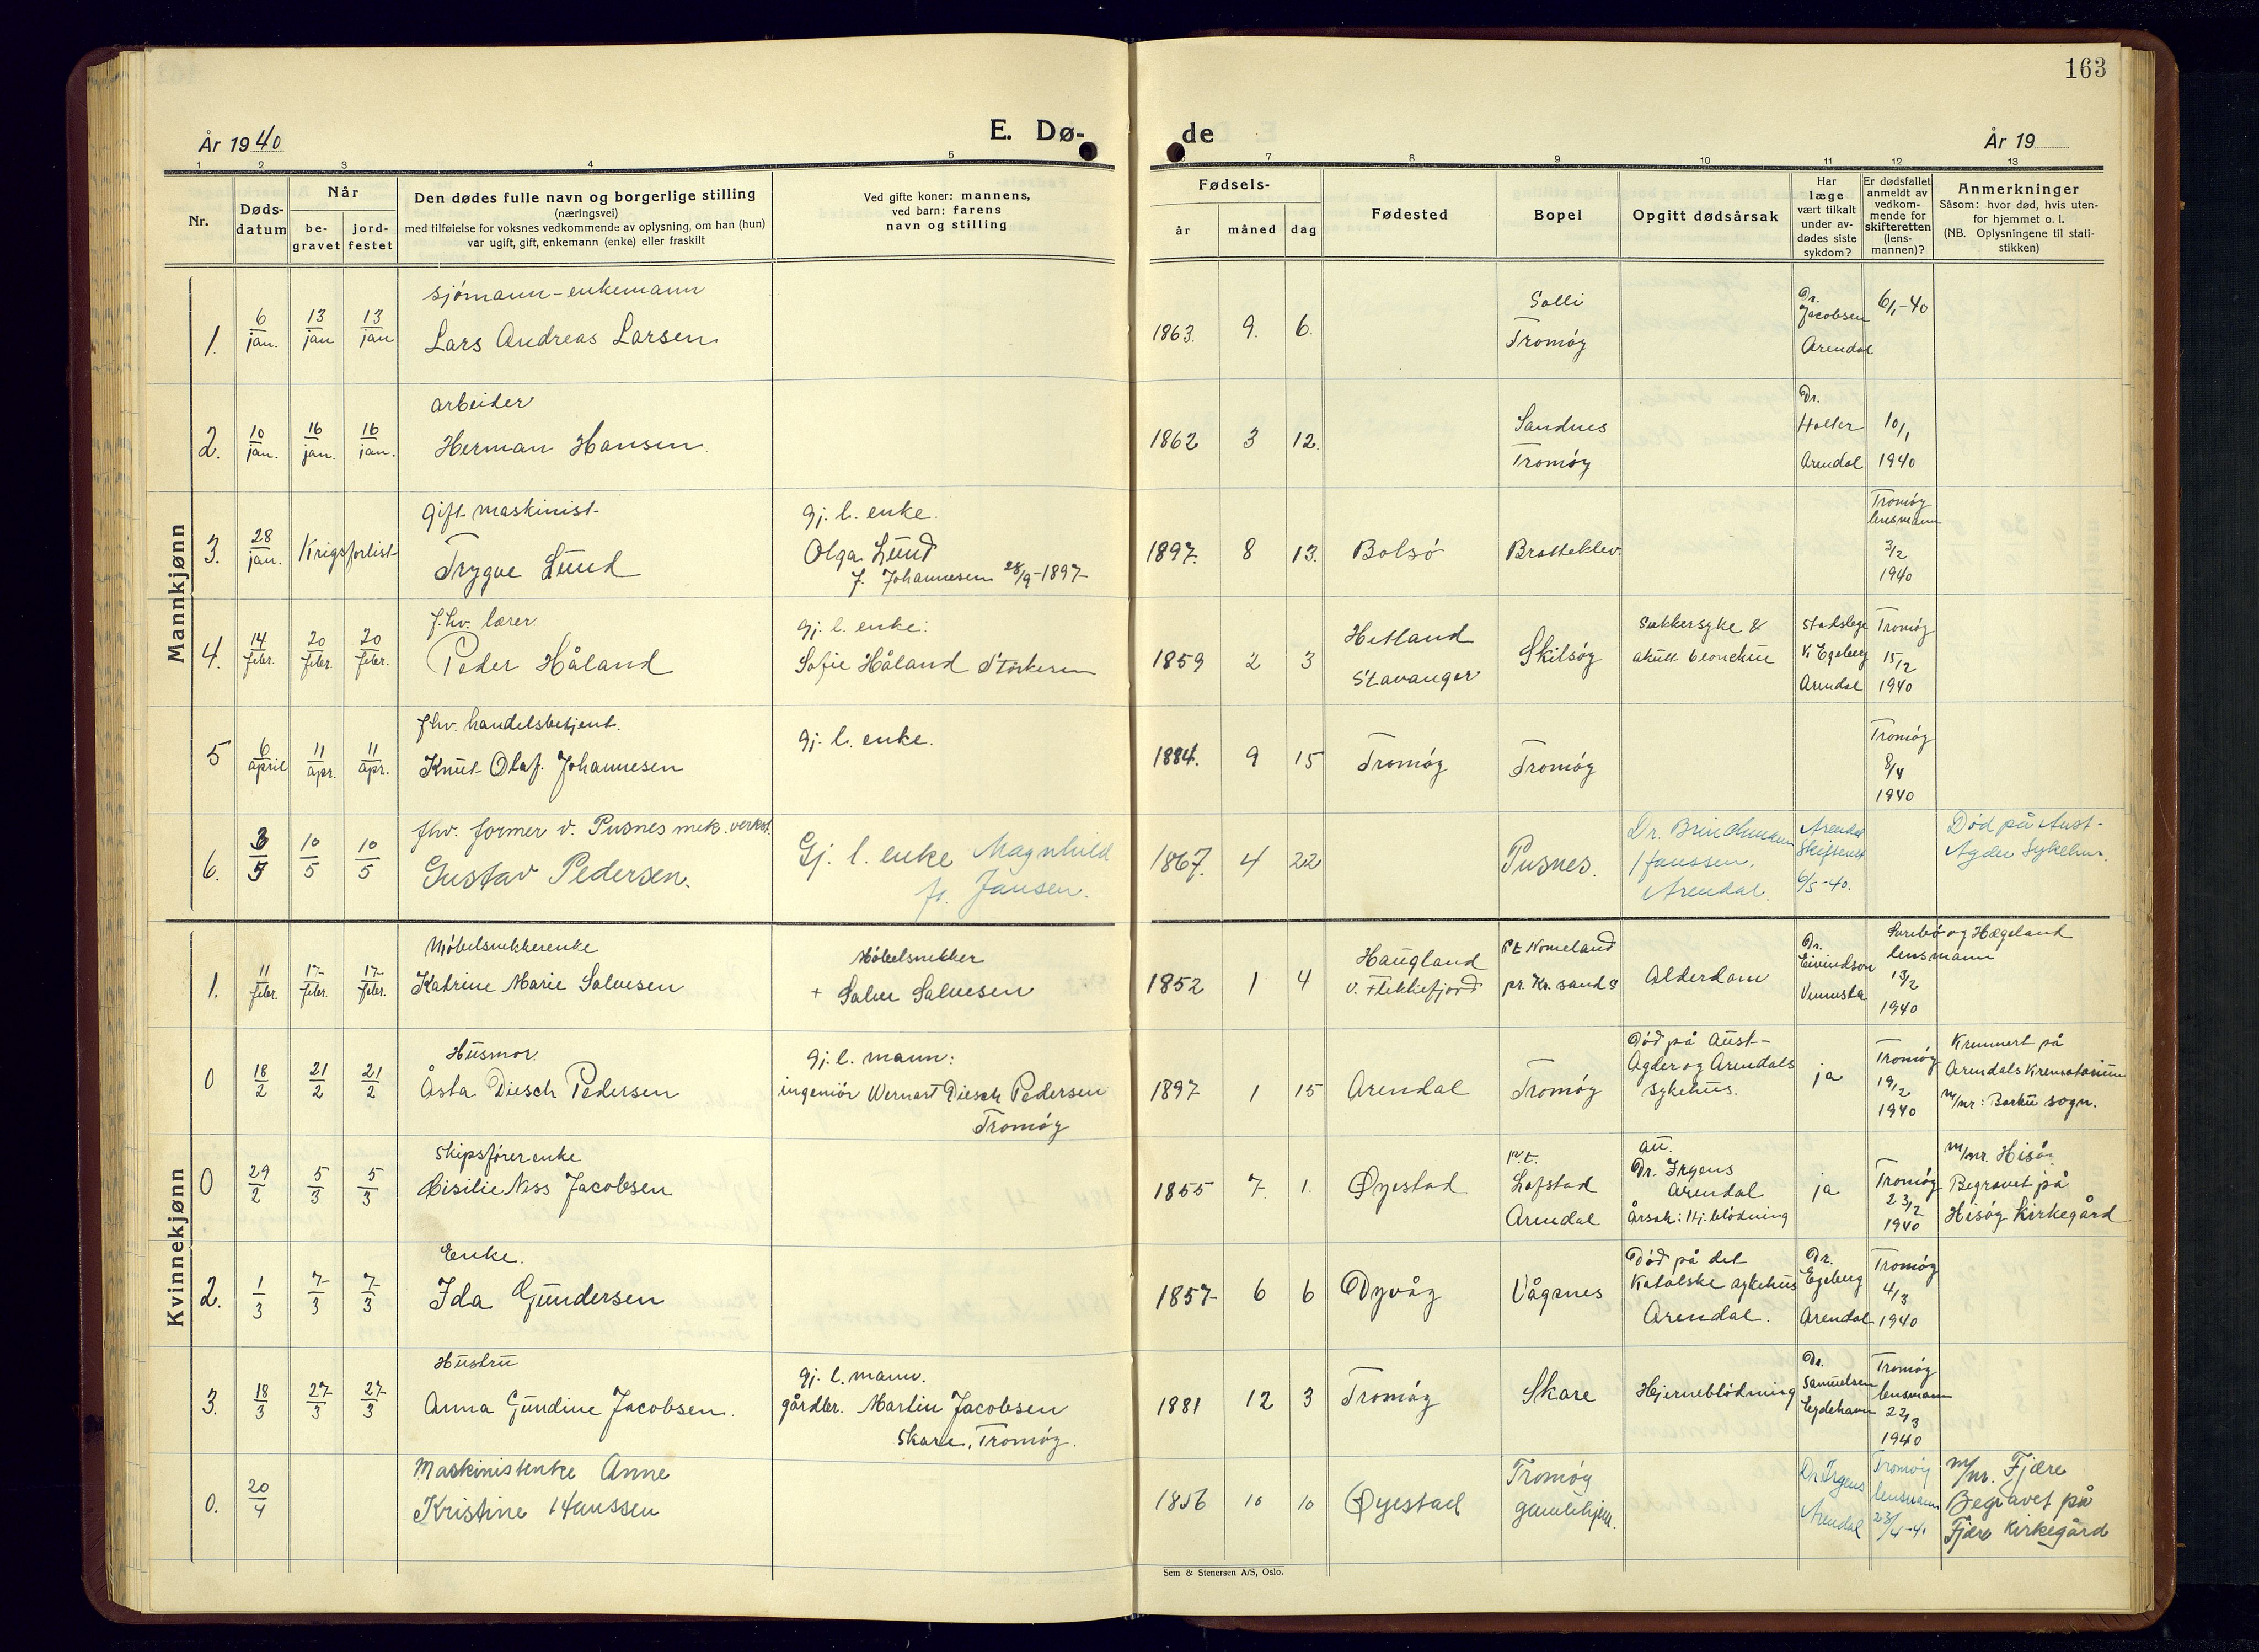 163
År 1940
E. Dø-
de
År 19
1 2 3 4 5
7 8 9 10 11 12 13
Nr.
Døds-
datum
Når
be-
gravet
jord-
festet
Den dødes fulle navn og borgerlige stilling
(næringsvei)
med tilføielse for voksnes vedkommende av oplysning, om han (hun)
var ugift, gift, enkemann (enke) eller fraskilt
Ved gifte koner: mannens,
ved barn: farens
navn og stilling
Fødsels-
år
måned
dag
Fødested
Bopel
Opgitt dødsårsak
Har
læge
vært tilkalt
under av-
dødes siste
sykdom?
Er dødsfallet
anmeldt av
vedkom-
mende for
skifteretten
(lens-
mannen)?
Anmerkninger
Såsom: hvor død, hvis uten-
for hjemmet o. l.
(NB. Oplysningene til stati-
stikken)
Mannkjønn
1.
6 jan.
13 jan
13 jan
sjømann - enkemann
Lars Andreas Larsen
1863. 9. 6.
Salli
Tromøy
Dr.
Jacobsen
Arendal
6/1-40
2.
10 jan.
16 jan.
16 jan.
arbeider
Herman Hansen
1862 3 12.
Sandnes
Tromøy
Dr.
Holter
Arendal
10/1
1940
3.
28 jan.
Krigsforlist
gift maskinist
Trygve Lund
gj. l. enke.
Olga Lund
f. Johannesen 28/9-1897
1897. 8 13.
Bolsö
Bratteklev
Tromøy
lensmann
3/2
1940
4.
14 febr.
20 febr.
20 febr.
f.hv. lærer
Peder Håland
gj. l. enke:
Sofie Håland Størkersen
1859 2 3
Hetland
Stavanger
Skilsøy
Sukkersyke &
akutt bronchitt
Stadslege
K. Egeberg
Arendal
Tromøy
15/2
1940
5
6 april
11 apr.
11 apr.
fhv. handelsbetjent.
Knut Olaf. Johannesen
gj. l. enke.
1884. 9 15
Tromøy
Tromøy
Tromøy
8/4
1940
6.
3/5
10/5
10/5
fhv. former v. Pusnes mek. verkst.
Gustav Pedersen.
Gj. l. enke Magnhild
f. Jansen.
1867. 4 22
Pusnes.
Dr. Brinchmann
Janssen.
Arendal.
Arendal
Skifterett
6/5-40.
Død på Aust-
Agder Sykehus.
Kvinnekjønn
1.
11 febr.
17 febr.
17 febr.
Møbelsnekkerenke
Katrine Marie Salvesen
Møbelsnekker
+ Salve Salvesen
1852 1 4
Haugland
v. Flekkefjord
Pt Homeland
pr. Kr. sand S
Alderdom
Dr.
Eivindson
Vennesla
og Hægeland
lensmann
13/2
1940
0
18/2
21/2
21/2
Husmor.
Åsta Diesch Pedersen
gj. l. mann:
ingeniör Wernart Diesch Pedersen
Tromøy
1897 1 15
Arendal
Tromøy
Død på Aust-
Agder og Arendals
sykehus.
ja
Tromøy
19/2
1940
Kremert på
Arendals Krematorium
m/nr: Barbu sogn.
0
29/2
5/3
5/3
Skipsførerenke
Cisilie Ness Jacobsen
1855 7 1.
Øyestad
p.t.
Lofstad
Arendal
au.
Dr. Irgens
Arendal
Årsak: Hj. blödning
ja
Tromøy
23/2
1940
m/nr. Hisøy
Begravet på
Hisøy Kirkegård
2.
1/3
7/3
7/3
Enke.
Ida Gundersen
1857 6 6
Dyvåg
Vågsnes
Død på det
Katolske sykehus
Arendal.
Dr.
Egeberg
Arendal
Tromøy
4/3
1940
3.
18/3
27/3
27/3
Hustru
Anna Gundine Jacobsen.
gj. l. mann.
gårdbr. Martin Jacobsen
Skare, Tromøy.
1881 12 3
Tromøy
Skare
Hjerneblödning
Dr.
Samuelsen
Eydehavn
Tromøy
lensmann
22/3
1940
0.
20/4
Maskinistenke Anne
Kristine Hanssen
1856 10 10
Øyestad
Tromøy
gamlehjem.
Dr. Irgens
Arendal
Tromøy
lensmann
23/4-40
m/nr. Fjære
Begravet på
Fjære Kirkegård
Sem & Stenersen A/S, Oslo.